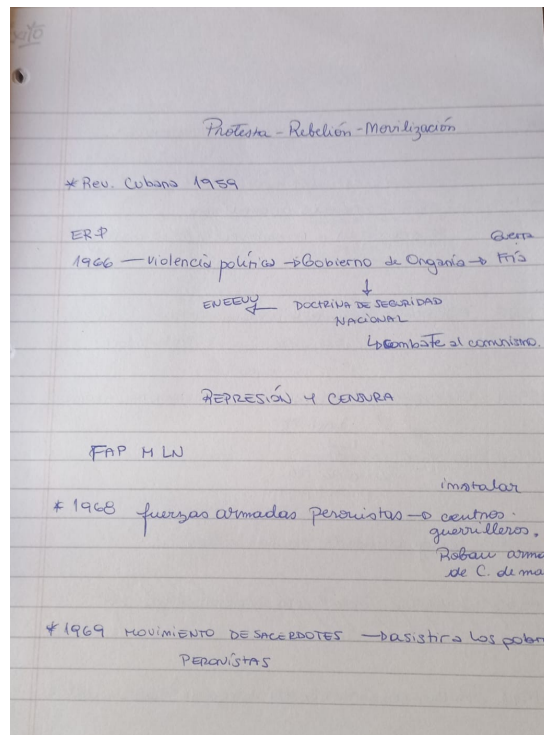 Protesta - Rebelión - Movilización
* Rev. Cubana 1959
ERP
Guerra
1966 — violencia política → Gobierno de Onganía → Fría
↓
EN EEUU ← DOCTRINA DE SEGURIDAD
NACIONAL
↳ combate al comunismo.
REPRESIÓN Y CENSURA
FAP MLN
instalar
* 1968 fuerzas armadas peronistas → centros
guerrilleros.
Roban arma
de C. de ma
* 1969 MOVIMIENTO DE SACERDOTES → asistir a los pobr
PERONISTAS